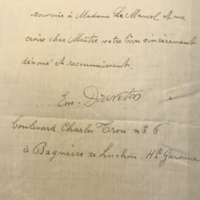 souvenir à Madame Le Manuel et me
crois cher Maître votre bien sincèrement
dévoué et reconnaissant.
Em.
boulevard Charles Tron nº 6
à Bagnères de Luchon Hte Garonne